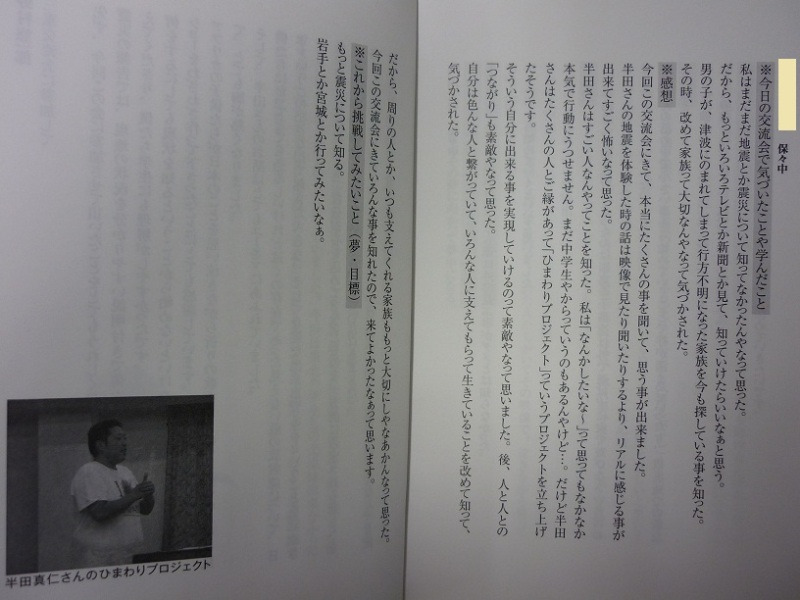 保々中
※今日の交流会で気づいたことや学んだこと
私はまだまだ地震とか震災について知ってなかったんやなって思った。
だから、もっといろいろテレビとか新聞とか見て、知っていけたらいいなぁと思う。
男の子が、津波にのまれてしまって行方不明になった家族を今も探している事を知った。
その時、改めて家族って大切なんやなって気づかされた。
※感想
今回この交流会にきて、本当にたくさんの事を聞いて、思う事が出来ました。
半田さんの地震を体験した時の話は映像で見たり聞いたりするより、リアルに感じる事が
出来てすごく怖いなって思った。
半田さんはすごい人なんやってことを知った。私は「なんかしたいな～」って思ってもなかなか
本気で行動にうつせません。まだ中学生やからっていうのもあるんやけど…。だけど半田
さんはたくさんの人とご縁があって「ひまわりプロジェクト」っていうプロジェクトを立ち上げ
たそうです。
そういう自分に出来る事を実現していけるのって素敵やなって思いました。後、人と人との
「つながり」も素敵やなって思った。
自分は色んな人と繋がっていて、いろんな人に支えてもらって生きていることを改めて知って、
気づかされた。
だから、周りの人とか、いつも支えてくれる家族ももっと大切にしやなあかんなって思った。
今回この交流会にきていろんな事を知れたので、来てよかったなぁって思います。
※これから挑戦してみたいこと（夢・目標）
もっと震災について知る。
岩手とか宮城とか行ってみたいなぁ。
半田真仁さんのひまわりプロジェクト